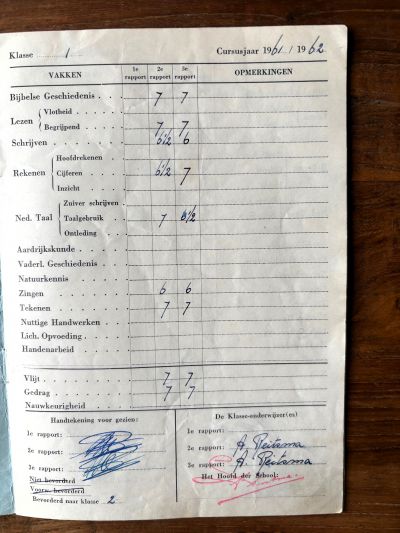 Klasse 1 Cursusjaar 1961 / 1962
VAKKEN 1e rapport 2e rapport 3e rapport OPMERKINGEN
Bijbelse Geschiedenis . . . 7 7
Lezen { Vlotheid . . . .
Begrijpend . . . 7 7
Schrijven . . . . . . 6½ 6
Hoofdrekenen . .
Rekenen { Cijferen . . . . 6½ 7
Inzicht . . . . .
Zuiver schrijven .
Ned. Taal { Taalgebruik . . . 7 6½
Ontleding . . . .
Aardrijkskunde . . . . .
Vaderl. Geschiedenis . . .
Natuurkennis . . . . . .
Zingen . . . . . . . 6 6
Tekenen . . . . . . . 7 7
Nuttige Handwerken . . .
Lich. Opvoeding . . . . .
Handenarbeid . . . . .
Vlijt . . . . . . . . 7 7
Gedrag . . . . . . . 7 7
Nauwkeurigheid . . . . .
Handtekening voor gezien: De Klasse-onderwijzer(es)
1e rapport: 1e rapport:
2e rapport: 2e rapport: A. Reitsma
3e rapport: 3e rapport: A. Reitsma
Niet bevorderd Het Hoofd der School:
Voorw. bevorderd
Bevorderd naar klasse 2